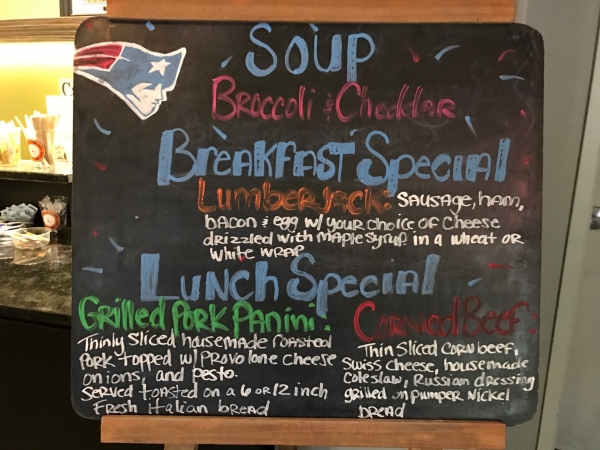 Soup
Broccoli & Cheddar
Breakfast Special
Lumberjack: Sausage, ham,
bacon & egg w/ your choice of cheese
drizzled with maple syrup in a wheat or
white wrap
Lunch Special
Grilled Pork Panini:
Thinly sliced housemade roasted
pork topped w/ provolone cheese
onions, and pesto.
Served toasted on a 6 or 12 inch
Fresh Italian bread
Corned Beef:
Thin sliced corn beef,
Swiss cheese, housemade
coleslaw, Russian dressing
grilled on pumper nickel
bread